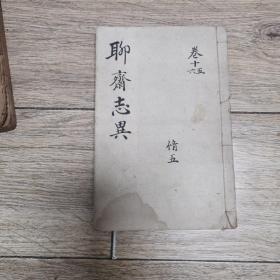 聊齋志異
卷十五六
脩五